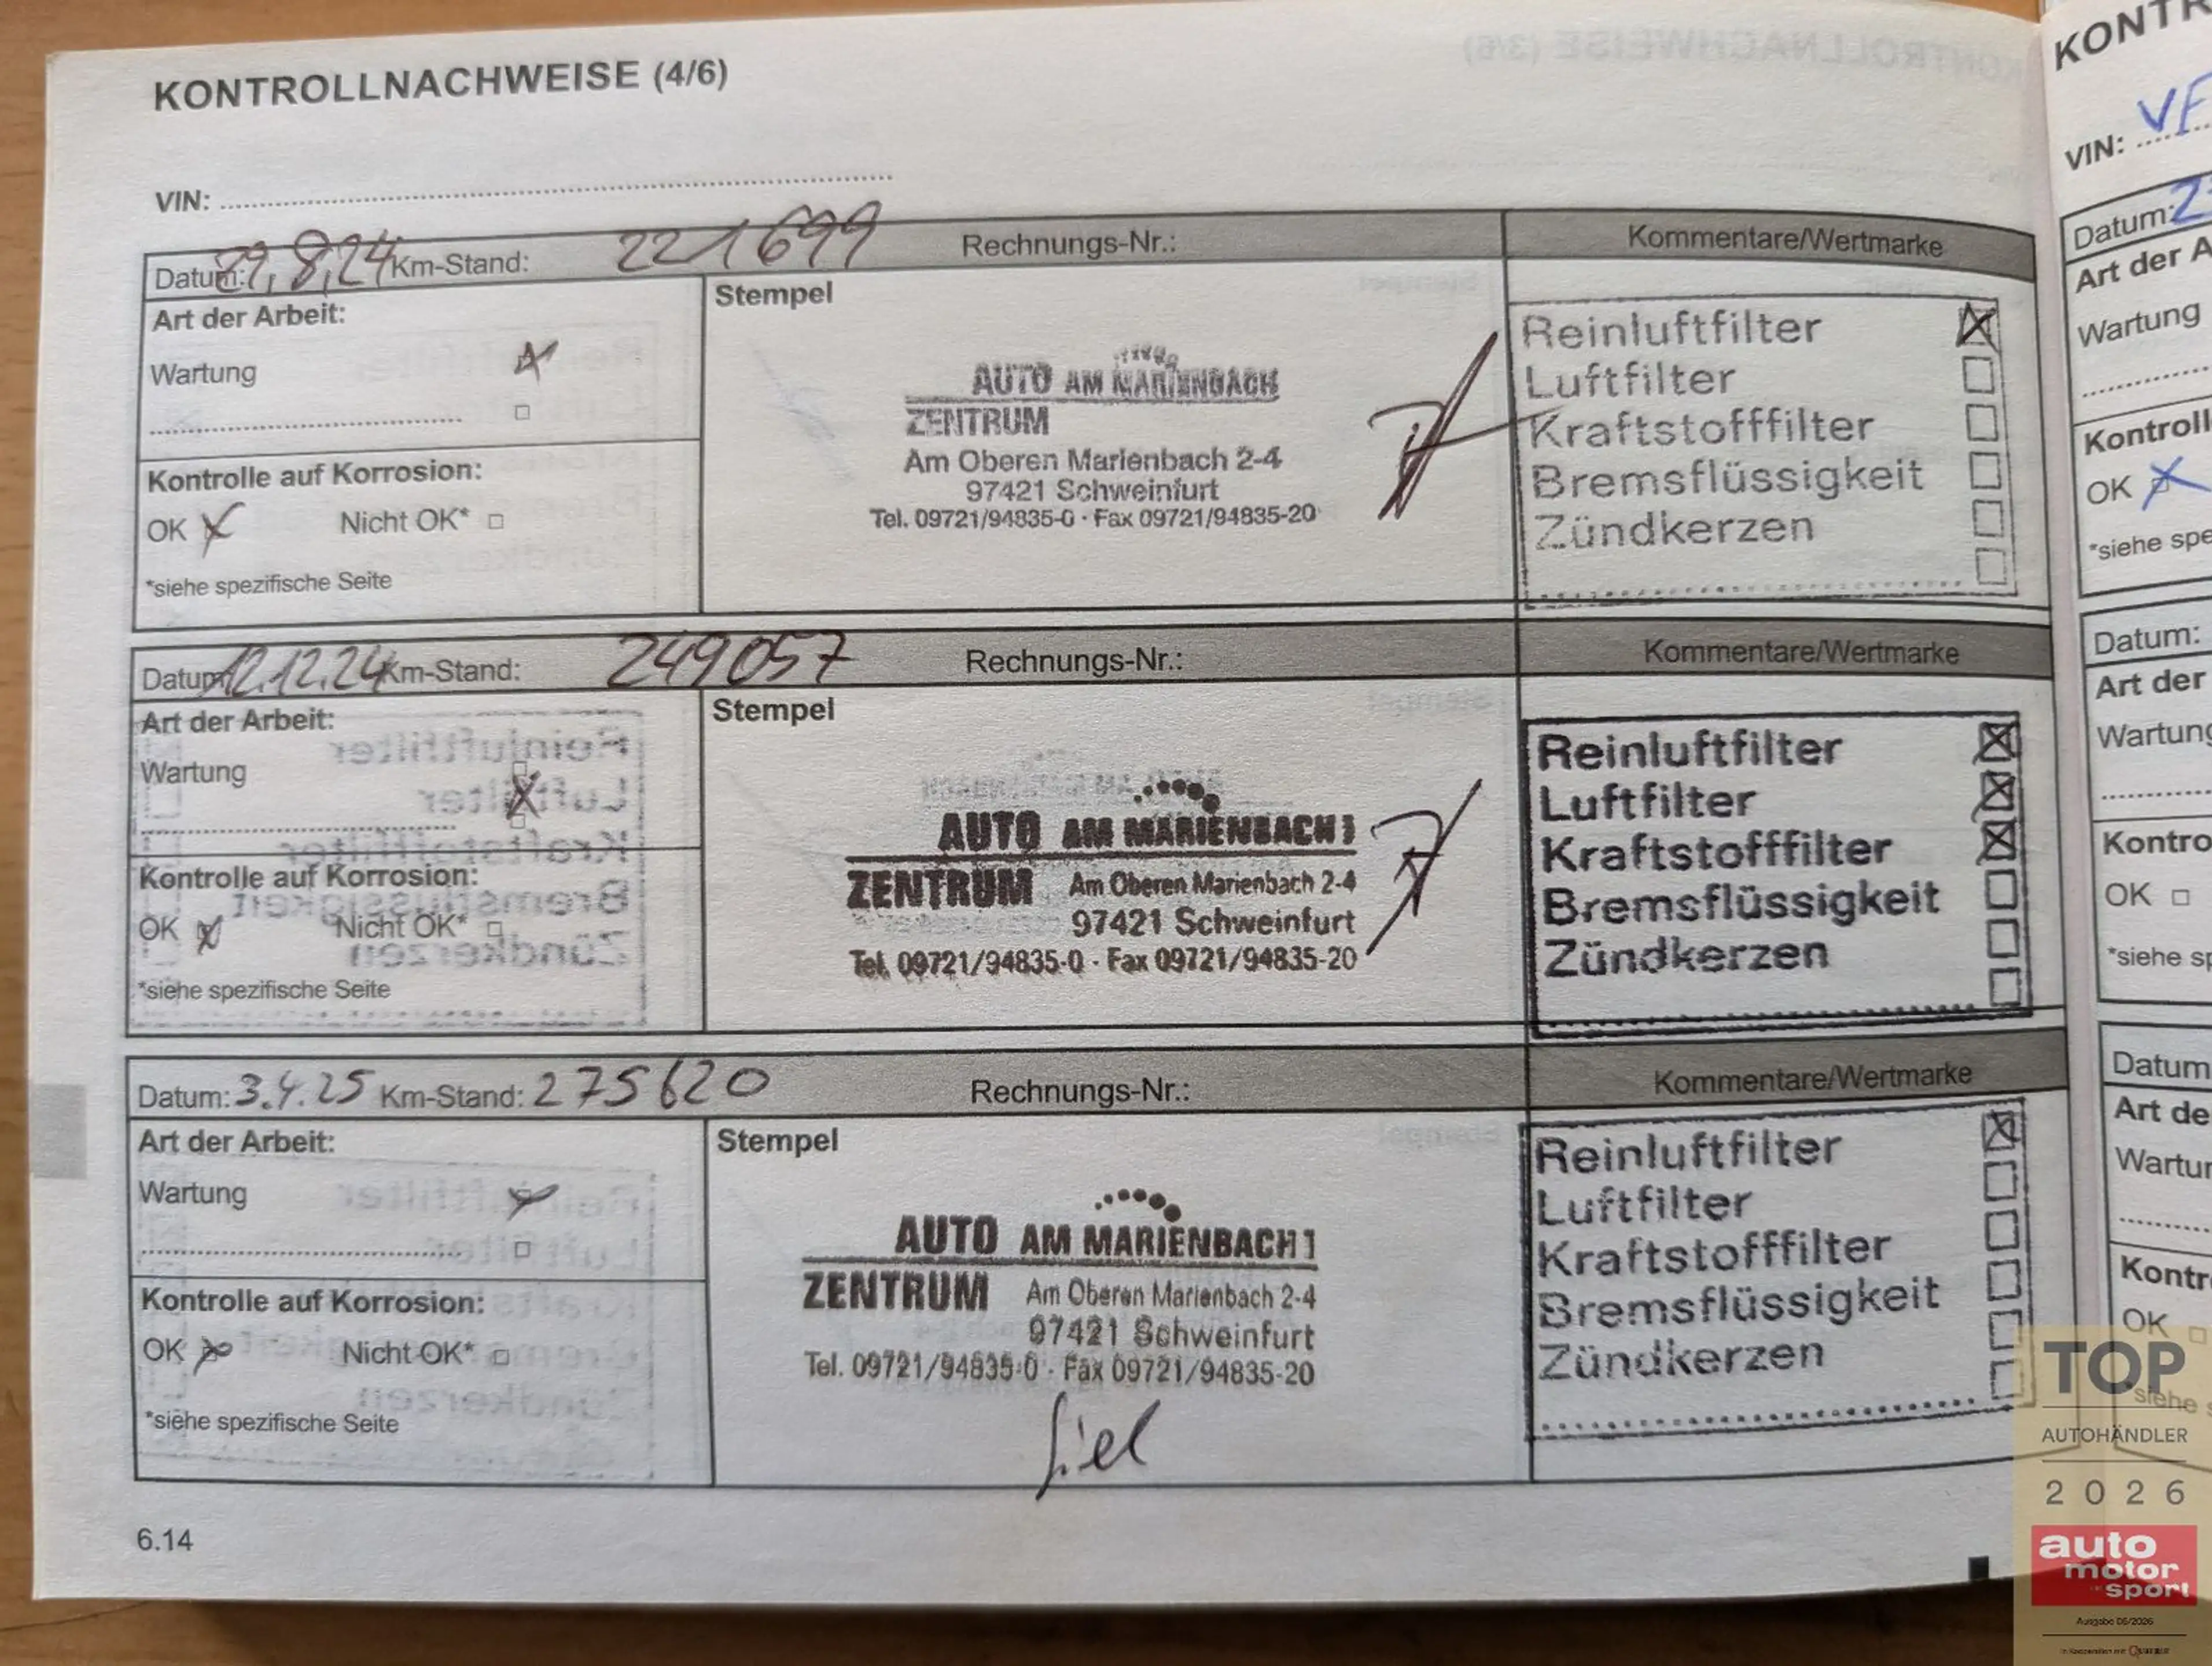 KONTROLLNACHWEISE (4/6)
VIN:
Datum: 29,8,24 Km-Stand: 221699 Rechnungs-Nr.: Kommentare/Wertmarke
Art der Arbeit:
Wartung
Kontrolle auf Korrosion:
OK Nicht OK*
*siehe spezifische Seite
Stempel
AUTO AM MARIENBACH
ZENTRUM
Am Oberen Marienbach 2-4
97421 Schweinfurt
Tel. 09721/94835-0 · Fax 09721/94835-20
Reinluftfilter
Luftfilter
Kraftstofffilter
Bremsflüssigkeit
Zündkerzen
Datum: 12.12.24 Km-Stand: 249057 Rechnungs-Nr.: Kommentare/Wertmarke
Art der Arbeit:
Wartung
Kontrolle auf Korrosion:
OK Nicht OK*
*siehe spezifische Seite
Stempel
AUTO AM MARIENBACH
ZENTRUM Am Oberen Marienbach 2-4
97421 Schweinfurt
Tel. 09721/94835-0 · Fax 09721/94835-20
Reinluftfilter
Luftfilter
Kraftstofffilter
Bremsflüssigkeit
Zündkerzen
Datum: 3.4.25 Km-Stand: 275620 Rechnungs-Nr.: Kommentare/Wertmarke
Art der Arbeit:
Wartung
Kontrolle auf Korrosion:
OK Nicht OK*
*siehe spezifische Seite
Stempel
AUTO AM MARIENBACH
ZENTRUM Am Oberen Marienbach 2-4
97421 Schweinfurt
Tel. 09721/94835-0 · Fax 09721/94835-20
Reinluftfilter
Luftfilter
Kraftstofffilter
Bremsflüssigkeit
Zündkerzen
6.14
KONTR
VIN: VF
Datum: 2
Art der A
Wartung
Kontroll
OK
*siehe spe
Datum:
Art der
Wartung
Kontro
OK
*siehe sp
Datum
Art de
Wartur
Kontr
OK
siehe s
TOP
AUTOHÄNDLER
2026
auto
motor
sport
Ausgabe 05/2026